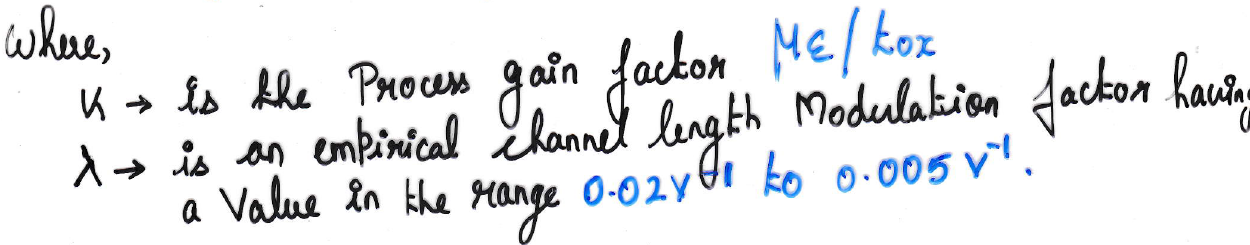 where,
K → is the Process gain factor με/tox
λ → is an empirical channel length Modulation factor having
a Value in the range 0.02V⁻¹ to 0.005 V⁻¹.